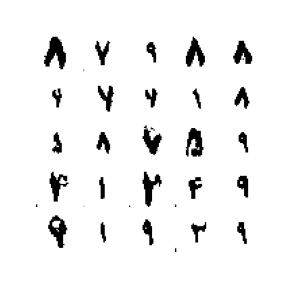 ۸ ۷ ۹ ۸ ۸
۱ ۸
۵ ۸ ۷ ۵ ۹
۴ ۱ ۴ ۹
۹ ۱ ۹ ۲ ۹